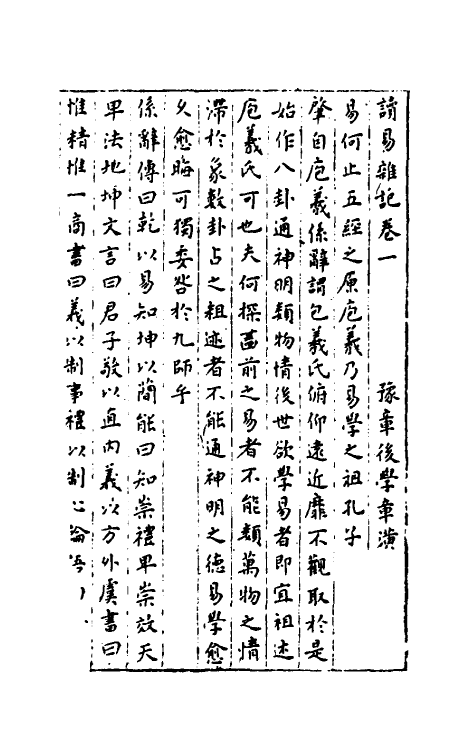 讀易雜記卷一 豫章後學章潢
易何止五經之原庖羲乃易學之祖孔子
肇自庖羲係辭謂包羲氏俯仰遠近靡不觀取於是
始作八卦通神明類物情後世欲學易者即宜祖述
庖羲氏可也夫何探畫前之易者不能類萬物之情
滯於象數卦占之粗迹者不能通神明之德易學愈
久愈晦可獨委咎於九師乎
係辭傳曰乾以易知坤以簡能曰知崇禮卑崇效天
卑法地坤文言曰君子敬以直內義以方外虞書曰
惟精惟一商書曰義以制事禮以制心論語